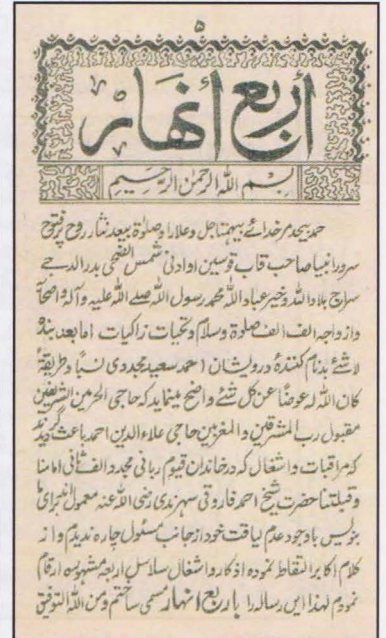 ۵
أربع أنهار
بسم الله الرحمن الرحيم
حمد بیحد مر خدائے بیہمتا جل و علا را و صلوٰۃ بیعد نثار روح پر فتوح
سرور انبیا صاحب قاب قوسین او ادنی شمس الضحی بدر الدجے
سراج بلاد اللہ و خیر عباد اللہ محمد رسول اللہ صلے اللہ علیہ و آلہ و اصحابہ
و ازواجہ الف الف صلوۃ و سلام و تحیات زاکیات اما بعد بندہ
لاشئے بدنام کنندۂ درویشان احمد سعید مجددی نسباً و طریقۃً
کان اللہ لہ عوضاً عن کل شئے واضح مینماید کہ حاجی الحرمین الشریفین
مقبول رب المشرقین و المغربین حاجی علاء الدین احمد باعث گردیدند
کہ مراقبات و اشغال کہ در خاندان قیوم ربانی مجدد الف ثانی امامنا
و قبلتنا حضرت شیخ احمد فاروقی سہرندی رضی اللہ عنہ معمول اند برای
بنویس باوجود عدم لیاقت خود از جانب مسئول چارہ ندیدم و از
کلام اکابر التقاط نمودہ اذکار و اشغال سلاسل اربعہ مشہورہ ارقام
نمودم لہذا این رسالہ را با ربع انہار مسمی ساختم و من اللہ التوفیق